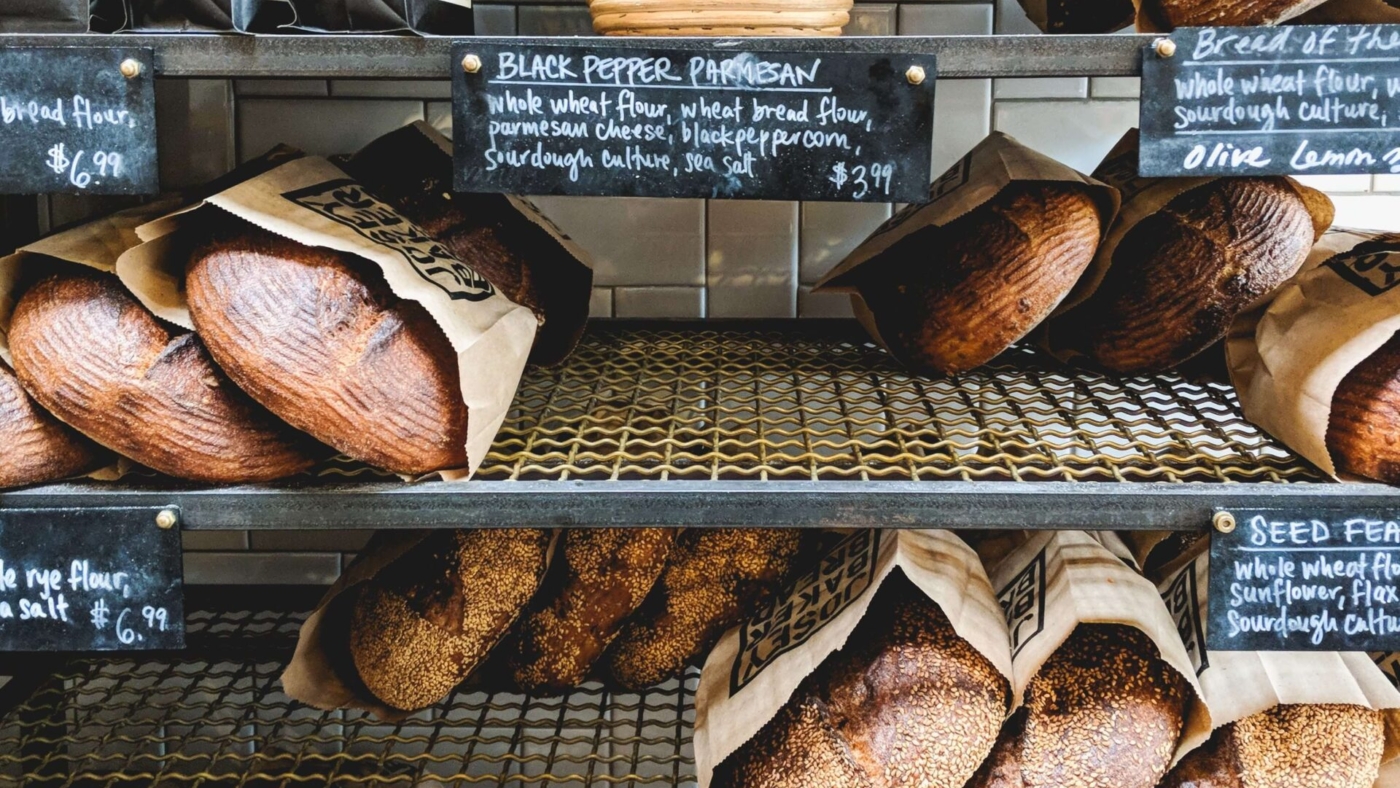 bread flour,
$6.99
BLACK PEPPER PARMESAN
whole wheat flour, wheat bread flour,
parmesan cheese, blackpeppercorn,
sourdough culture, sea salt
$3.99
Bread of the
whole wheat flour,
sourdough culture,
Olive Lemon
JOSEY
BAKER
rye flour,
salt $6.99
JOSEY
BAKER
SEED
whole wheat
sunflower, flax
sourdough